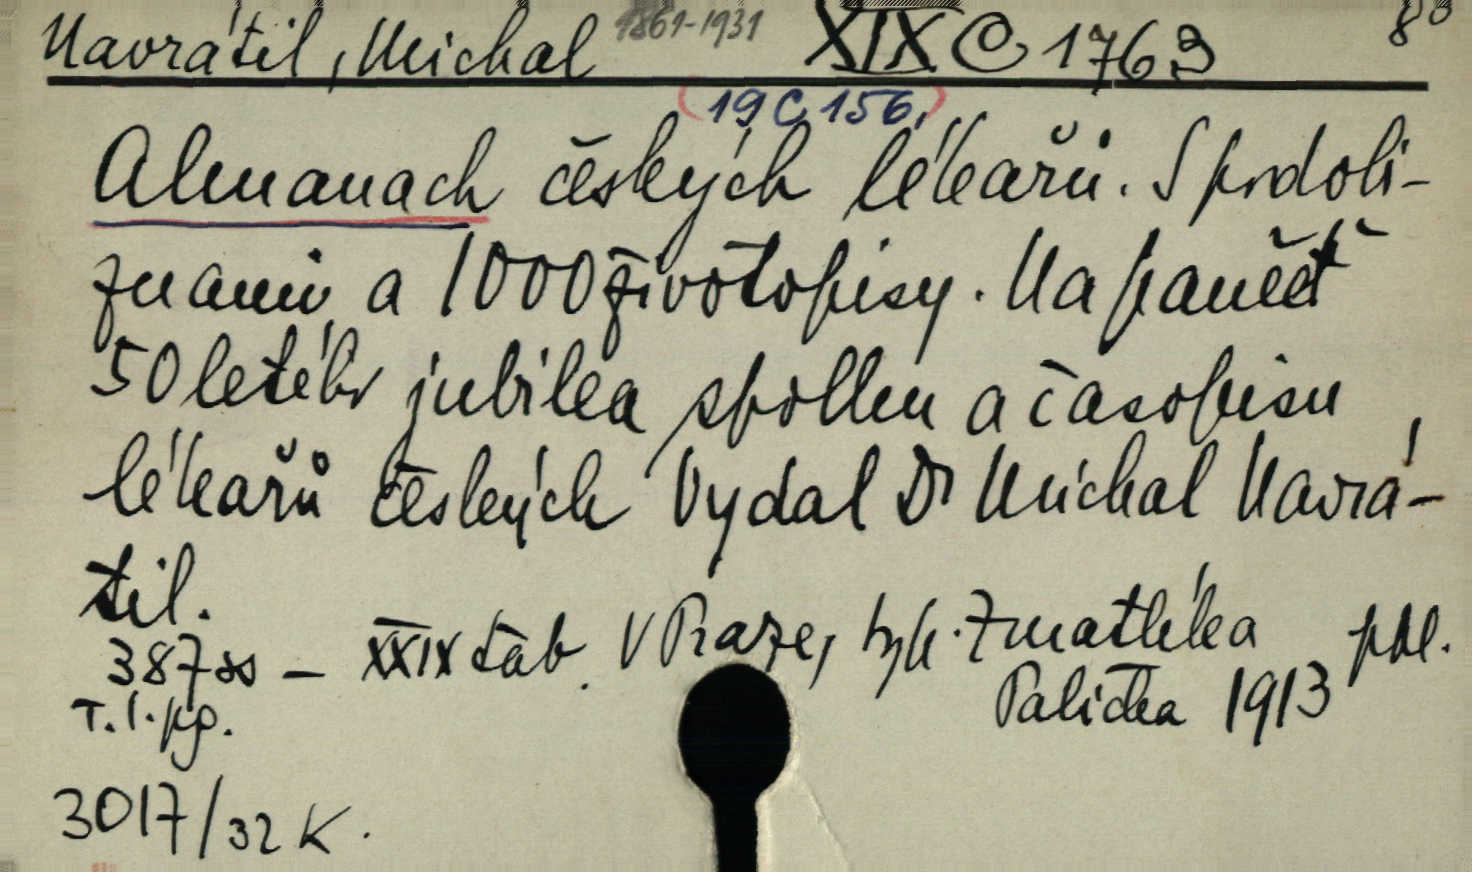 Navrátil, Michal 1861-1931 XIX C 1763 8°
(19 C 156.)
Almanach českých lékařů. S podobi-
znami a 1000 životopisy. Na paměť
50letého jubilea spolku a časopisu
lékařů českých Vydal Dr Michal Navrá-
til.
387 ss – XXIX tab. V Praze, typ. Zmatlíka pal.
Palička 1913
T. l. pg.
3017/32 K.